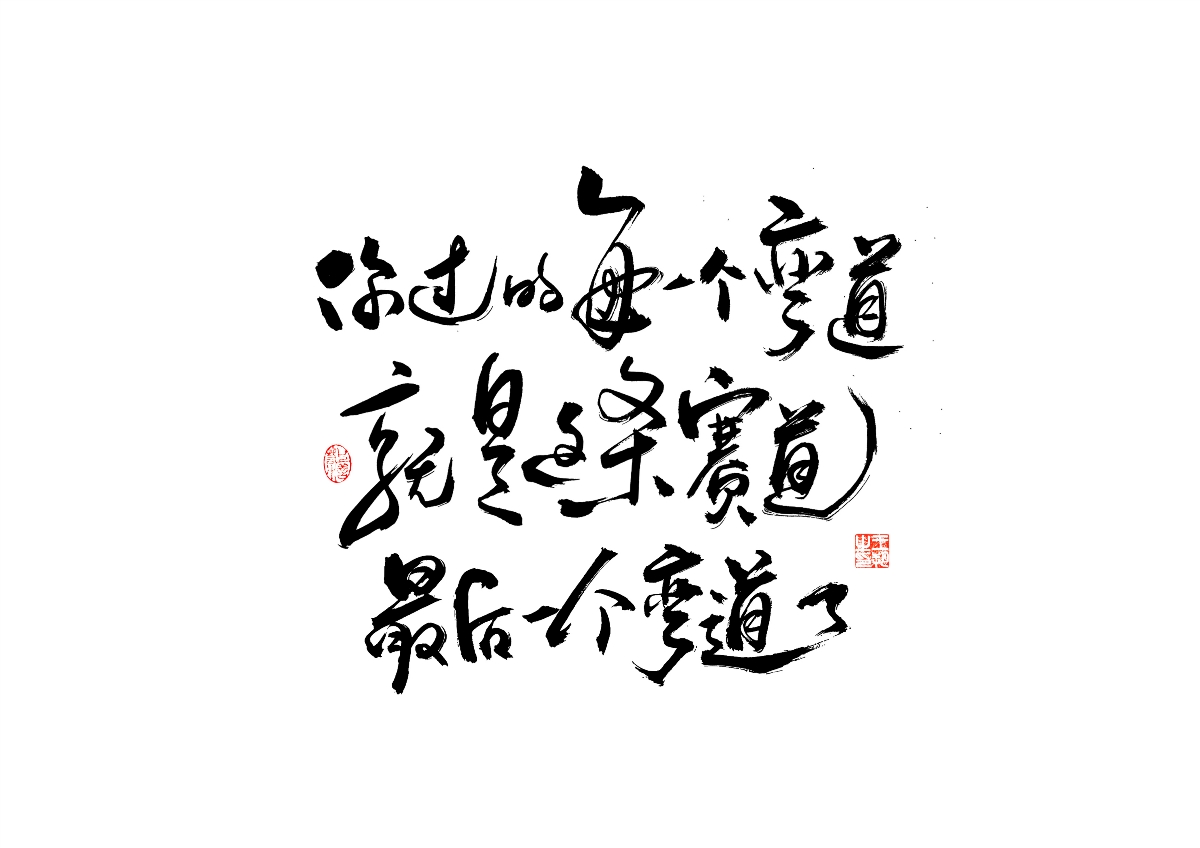 你过的每一个弯道
就是这条赛道
最后一个弯道了